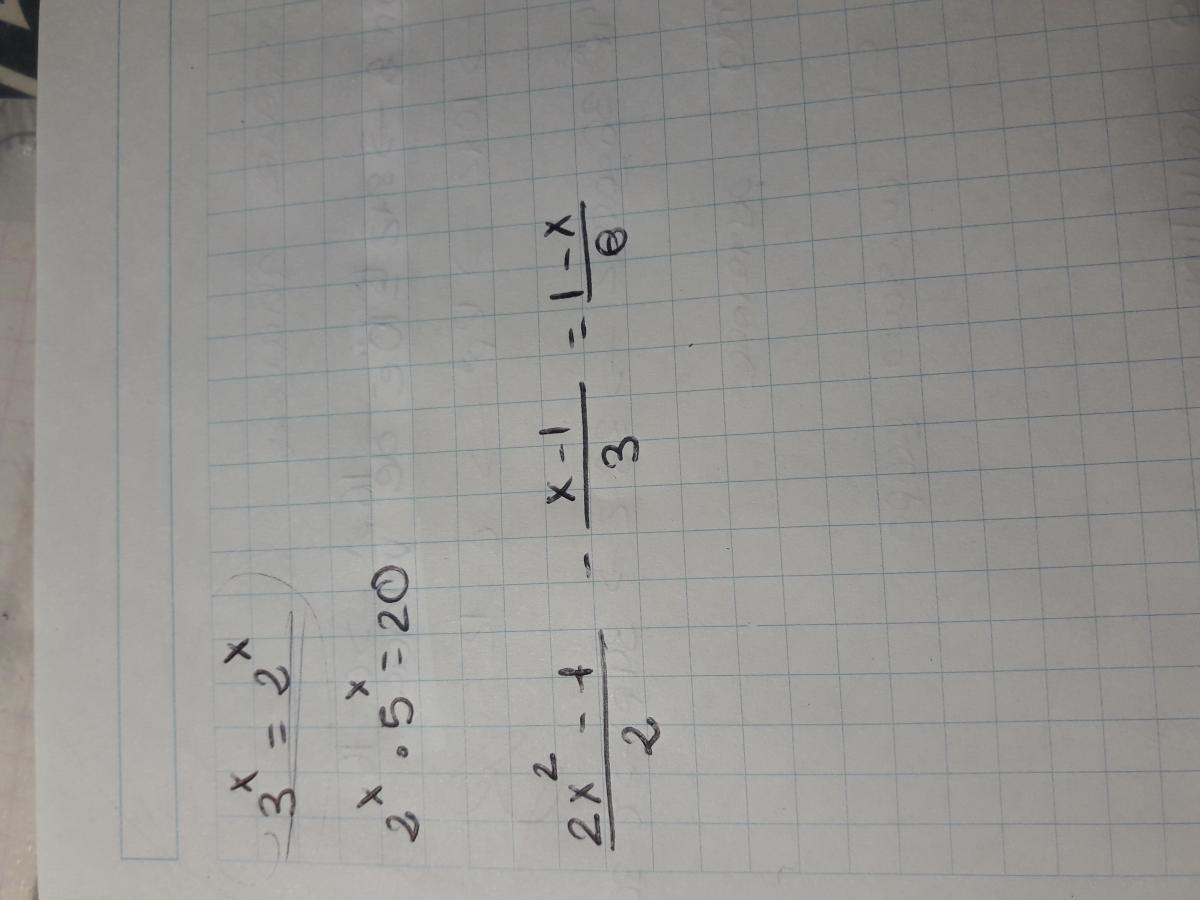 3^x = 2^x
2^x · 5^x = 20
(2x^2 - 1)/2 - (x - 1)/3 = (1 - x)/6